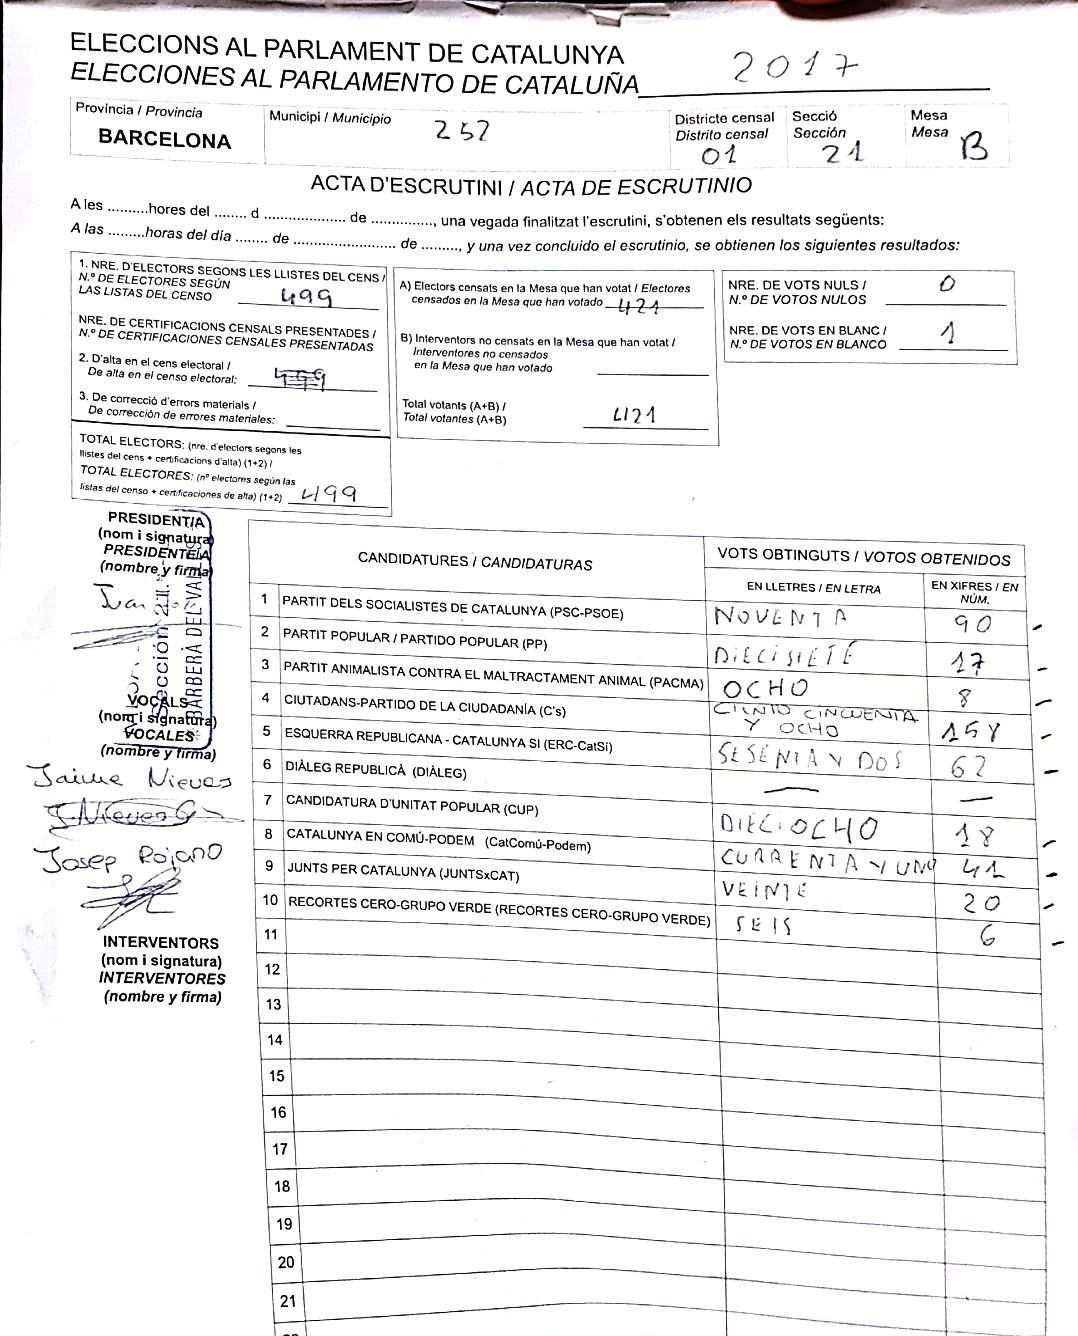 ELECCIONS AL PARLAMENT DE CATALUNYA
ELECCIONES AL PARLAMENTO DE CATALUÑA 2017
Província / Provincia
BARCELONA
Municipi / Municipio
252
Districte censal
Distrito censal
01
Secció
Sección
21
Mesa
Mesa
B
ACTA D'ESCRUTINI / ACTA DE ESCRUTINIO
A les ..........hores del ........ d .................... de ..............., una vegada finalitzat l'escrutini, s'obtenen els resultats següents:
A las ..........horas del día ........ de ......................... de ........., y una vez concluido el escrutinio, se obtienen los siguientes resultados:
1. NRE. D'ELECTORS SEGONS LES LLISTES DEL CENS /
N.º DE ELECTORES SEGÚN
LAS LISTAS DEL CENSO 499
NRE. DE CERTIFICACIONS CENSALS PRESENTADES /
N.º DE CERTIFICACIONES CENSALES PRESENTADAS
2. D'alta en el cens electoral /
De alta en el censo electoral:
3. De correcció d'errors materials /
De corrección de errores materiales:
TOTAL ELECTORS: (nre. d'electors segons les
llistes del cens + certificacions d'alta) (1+2) /
TOTAL ELECTORES: (nº electores según las
listas del censo + certificaciones de alta) (1+2) 499
A) Electors censats en la Mesa que han votat / Electores
censados en la Mesa que han votado 421
B) Interventors no censats en la Mesa que han votat /
Interventores no censados
en la Mesa que han votado
Total votants (A+B) /
Total votantes (A+B) 421
NRE. DE VOTS NULS /
N.º DE VOTOS NULOS 0
NRE. DE VOTS EN BLANC /
N.º DE VOTOS EN BLANCO 1
PRESIDENT/A
(nom i signatura)
PRESIDENTE/A
(nombre y firma)
Juan
Sección 21
BARBERÀ DEL VALLÈS
VOCALS
(nom i signatura)
VOCALES
(nombre y firma)
Jaime Nieves
J. Nieves G
Josep Rojano
INTERVENTORS
(nom i signatura)
INTERVENTORES
(nombre y firma)
CANDIDATURES / CANDIDATURAS
VOTS OBTINGUTS / VOTOS OBTENIDOS
EN LLETRES / EN LETRA
EN XIFRES / EN NÚM.
1 PARTIT DELS SOCIALISTES DE CATALUNYA (PSC-PSOE) NOVENTA 90
2 PARTIT POPULAR / PARTIDO POPULAR (PP) DIECISIETE 17
3 PARTIT ANIMALISTA CONTRA EL MALTRACTAMENT ANIMAL (PACMA) OCHO 8
4 CIUTADANS-PARTIDO DE LA CIUDADANÍA (C's) CIENTO CINCUENTA Y OCHO 158
5 ESQUERRA REPUBLICANA - CATALUNYA SI (ERC-CatSí) SESENTA Y DOS 62
6 DIÀLEG REPUBLICÀ (DIÀLEG) — —
7 CANDIDATURA D'UNITAT POPULAR (CUP) DIECIOCHO 18
8 CATALUNYA EN COMÚ-PODEM (CatComú-Podem) CURRENTA Y UNO 41
9 JUNTS PER CATALUNYA (JUNTSxCAT) VEINTE 20
10 RECORTES CERO-GRUPO VERDE (RECORTES CERO-GRUPO VERDE) SEIS 6
11
12
13
14
15
16
17
18
19
20
21